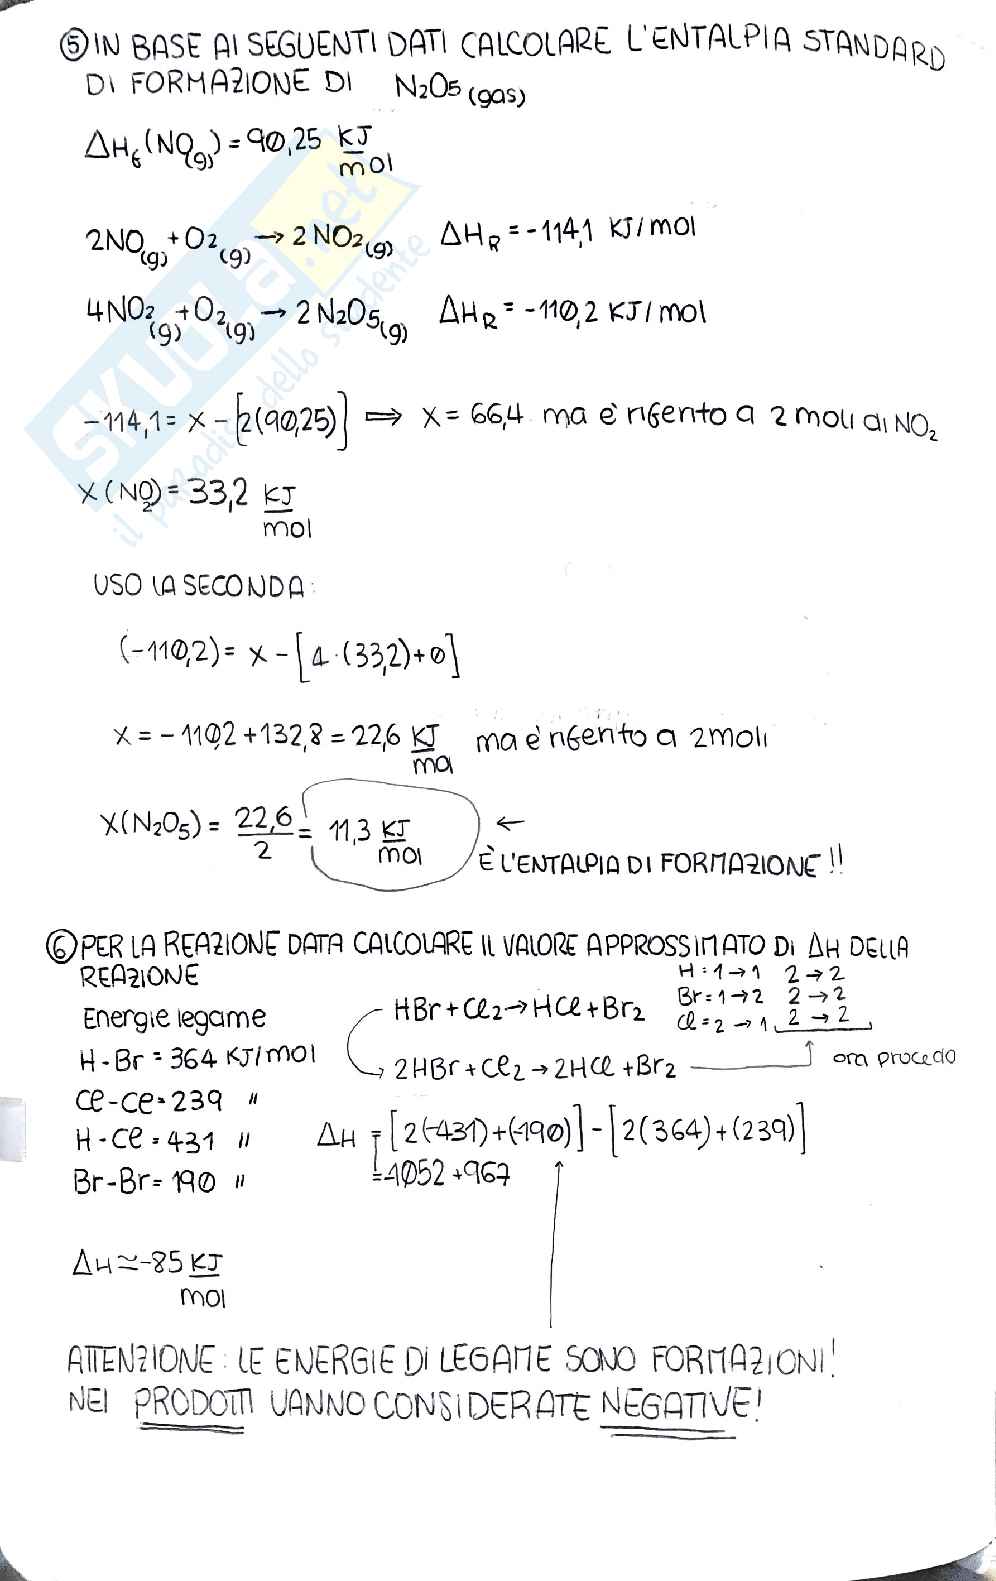 ⑤ IN BASE AI SEGUENTI DATI CALCOLARE L'ENTALPIA STANDARD
DI FORMAZIONE DI N2O5(gas)
ΔHf(NO(g)) = 90,25 KJ/mol
2NO(g) + O2(g) → 2NO2(g) ΔHR = -114,1 KJ/mol
4NO2(g) + O2(g) → 2N2O5(g) ΔHR = -110,2 KJ/mol
-114,1 = X - [2(90,25)] ⟹ X = 66,4 ma è riferito a 2 moli di NO2
X(NO2) = 33,2 KJ/mol
USO LA SECONDA:
(-110,2) = X - [4·(33,2)+0]
X = -110,2 + 132,8 = 22,6 KJ/mol ma è riferito a 2 moli
X(N2O5) = 22,6/2 = 11,3 KJ/mol ←
È L'ENTALPIA DI FORMAZIONE!!
⑥ PER LA REAZIONE DATA CALCOLARE IL VALORE APPROSSIMATO DI ΔH DELLA
REAZIONE
H: 1→1 2→2
Br = 1→2 2→2
Cl = 2→1 2→2
Energie legame
HBr + Cl2 → HCl + Br2
H-Br = 364 KJ/mol
2HBr + Cl2 → 2HCl + Br2
ora procedo
Cl-Cl = 239 "
H-Cl = 431 "
Br-Br = 190 "
ΔH = [2(-431)+(-190)] - [2(364)+(239)]
= -1052 + 967
ΔH ≃ -85 KJ/mol
ATTENZIONE: LE ENERGIE DI LEGAME SONO FORMAZIONI!
NEI PRODOTTI VANNO CONSIDERATE NEGATIVE!
SKUOLA.net
il paradiso dello studente